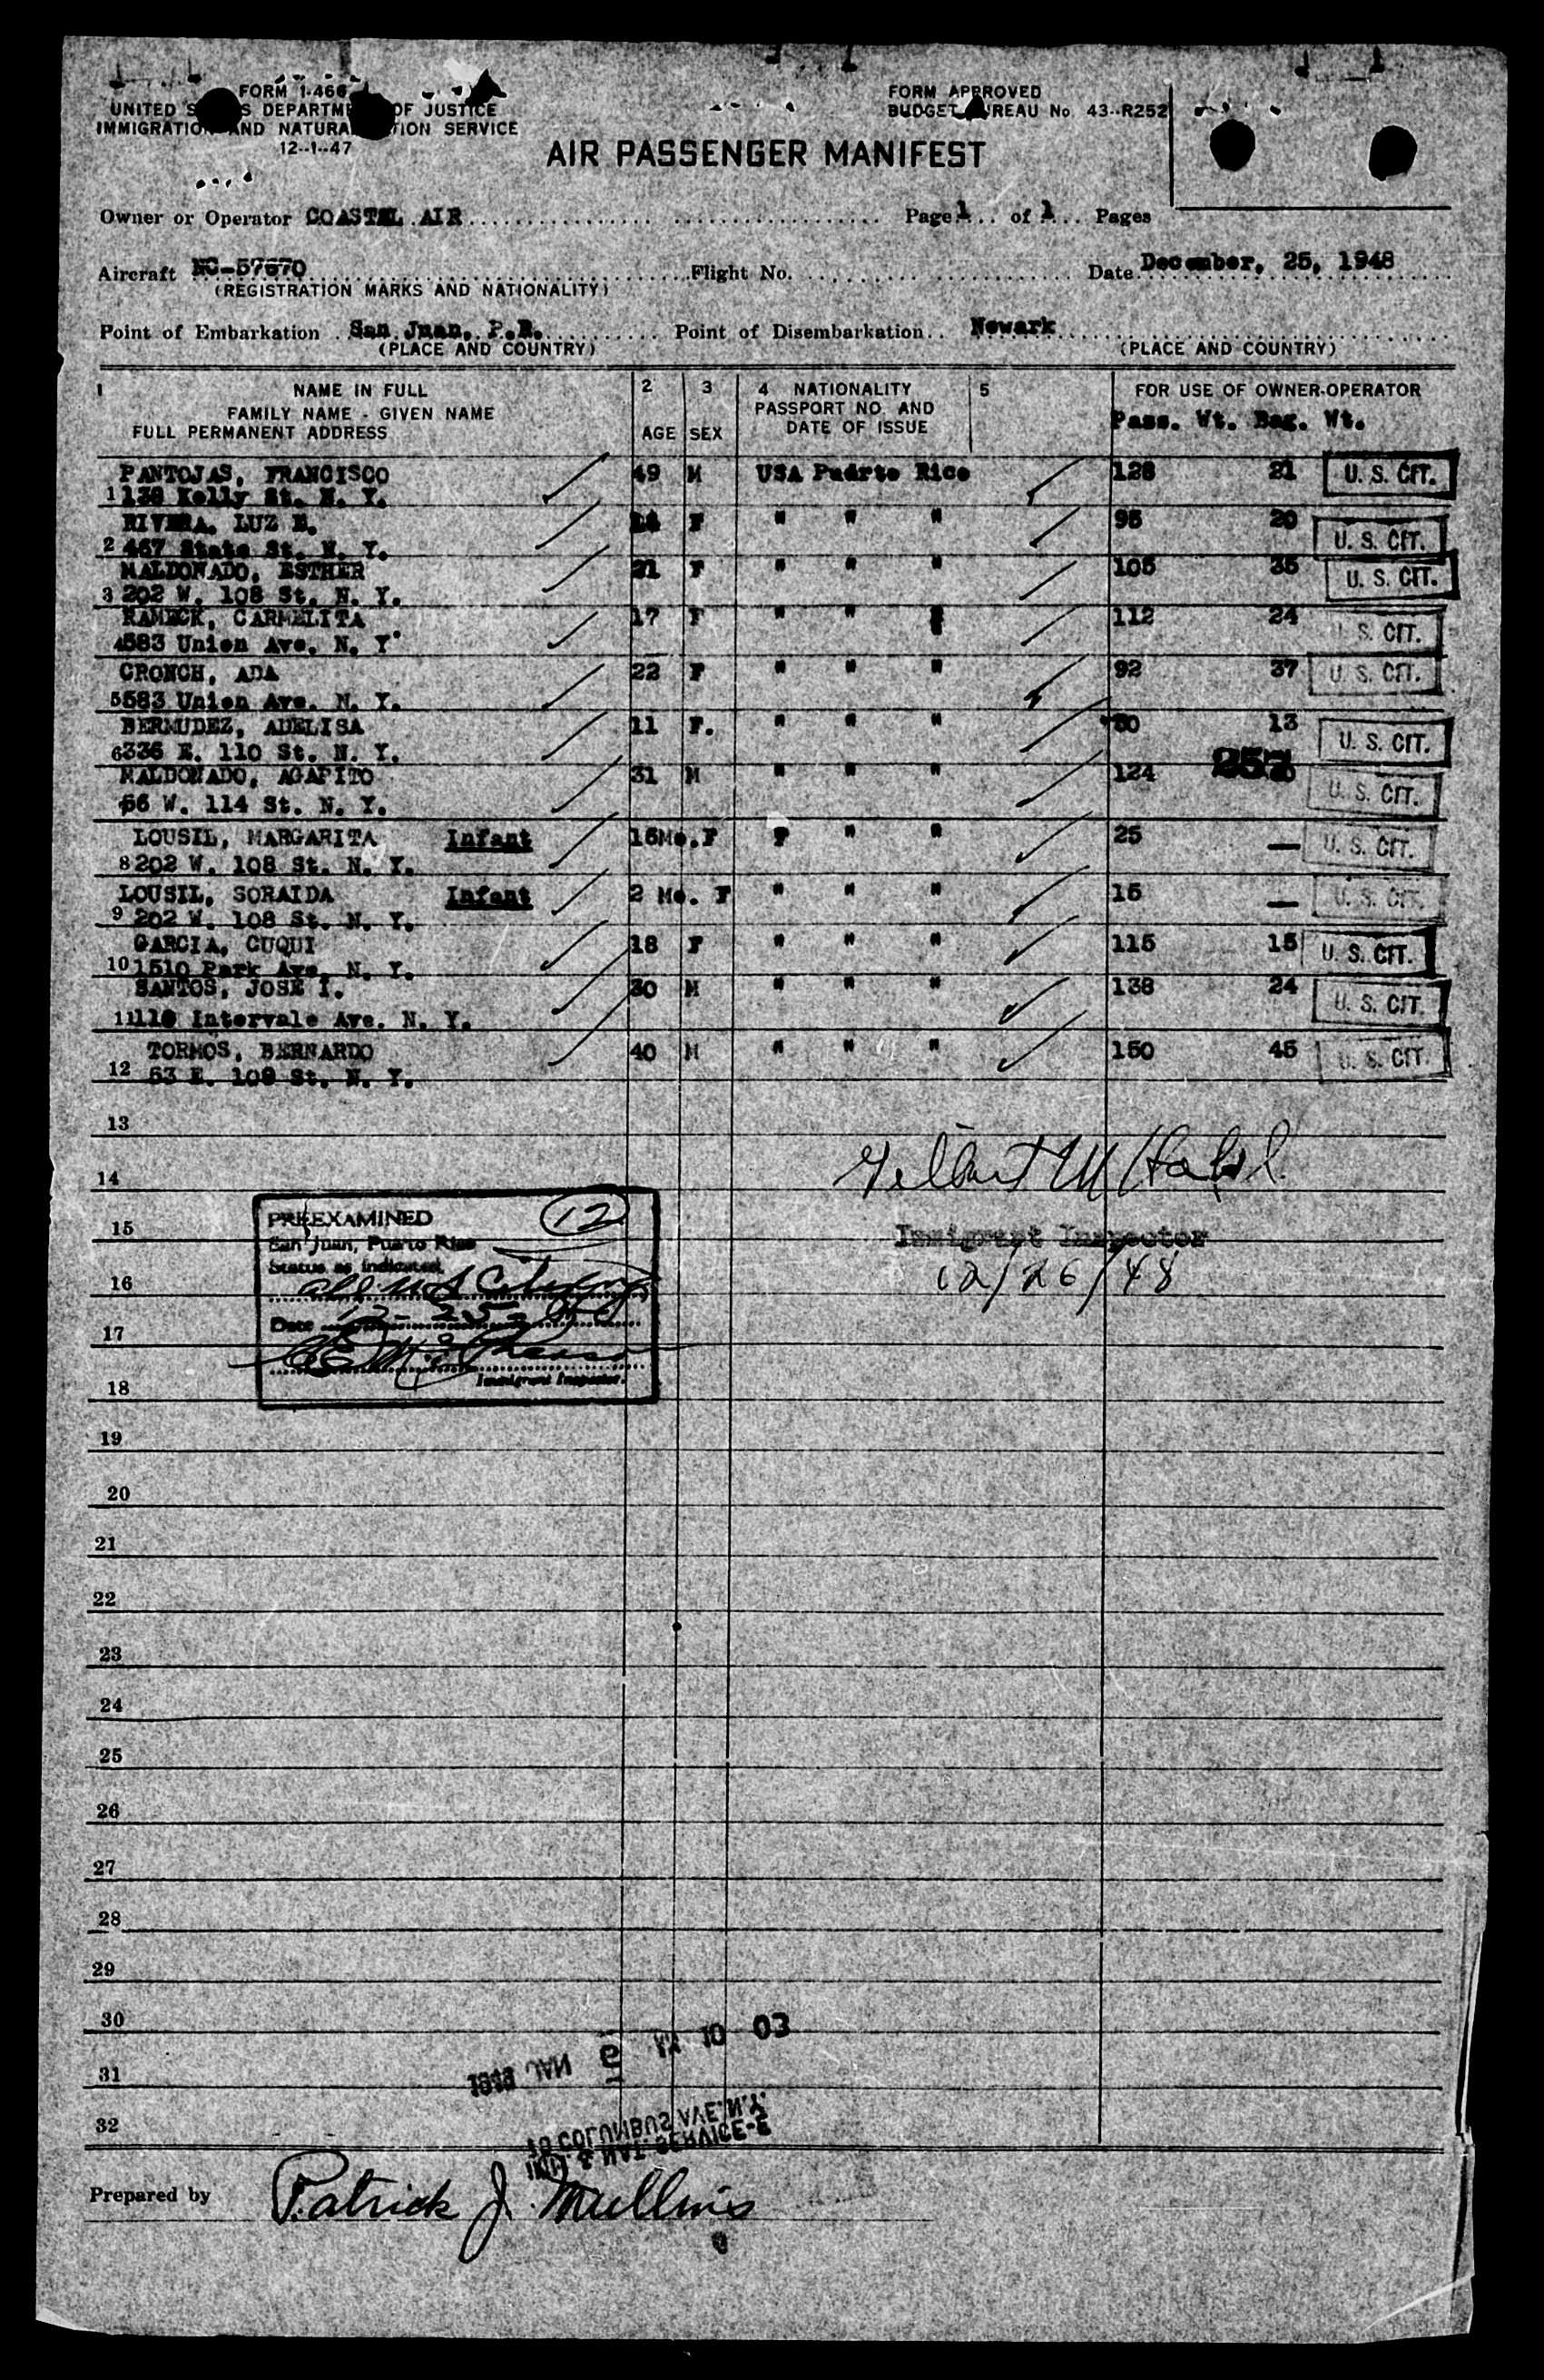 FORM I-466
UNITED S S DEPARTME OF JUSTICE
IMMIGRATION AND NATURA TION SERVICE
12--1--47
FORM APPROVED
BUDGET BUREAU No. 43--R252
AIR PASSENGER MANIFEST
Owner or Operator COASTEL AIR Page 1 of 1 Pages
Aircraft NC-57670 Flight No. Date December, 25, 1948
(REGISTRATION MARKS AND NATIONALITY)
Point of Embarkation San Juan, P.R. Point of Disembarkation Newark
(PLACE AND COUNTRY) (PLACE AND COUNTRY)
1 NAME IN FULL 2 3 4 NATIONALITY 5 FOR USE OF OWNER-OPERATOR
FAMILY NAME - GIVEN NAME PASSPORT NO. AND Pass. Wt. Bag. Wt.
FULL PERMANENT ADDRESS AGE SEX DATE OF ISSUE
PANTOJAS, FRANCISCO 49 M USA Puerto Rico 128 21 U. S. CIT.
1 Kelly St. N. Y.
RIVERA, LUZ E. F " " " 95 20 U. S. CIT.
2 467 State St. N. Y.
MALDONADO, ESTHER 21 F " " " 105 35 U. S. CIT.
3 202 W. 108 St. N. Y.
RAMECK, CARMELITA 17 F " " " 112 24 U. S. CIT.
4 583 Union Ave. N. Y.
CRONCH, ADA 22 F " " " 92 37 U. S. CIT.
5 583 Union Ave. N. Y.
BERMUDEZ, ADELISA 11 F. " " " 80 13 U. S. CIT.
6 336 E. 110 St. N. Y.
MALDONADO, AGAPITO 31 M " " " 124 257 U. S. CIT.
56 W. 114 St. N. Y.
LOUSIL, MARGARITA Infant 16Mo. F " " " 25 — U. S. CIT.
8 202 W. 108 St. N. Y.
LOUSIL, SORAIDA Infant 2 Mo. F " " " 15 — U. S. CIT.
9 202 W. 108 St. N. Y.
GARCIA, CUQUI 18 F " " " 115 15 U. S. CIT.
10 1510 Park Ave. N. Y.
SANTOS, JOSE I. 30 M " " " 138 24 U. S. CIT.
11 Intervale Ave. N. Y.
TORMOS, BERNARDO 40 M " " " 150 45 U. S. CIT.
12 53 E. 109 St. N. Y.
13
14
PREEXAMINED 12
15 Immigrant Inspector
San Juan, Puerto Rico
Status as indicated
16 12/26/48
all U S Citizens
Date 12-25-48
17
Immigrant Inspector.
18
19
20
21
22
23
24
25
26
27
28
29
30
JAN 9 10 03
31
COLUMBUS AVE. N.Y.
IMM & NAT. SERVICE-E
32
Prepared by Patrick J. Mullins